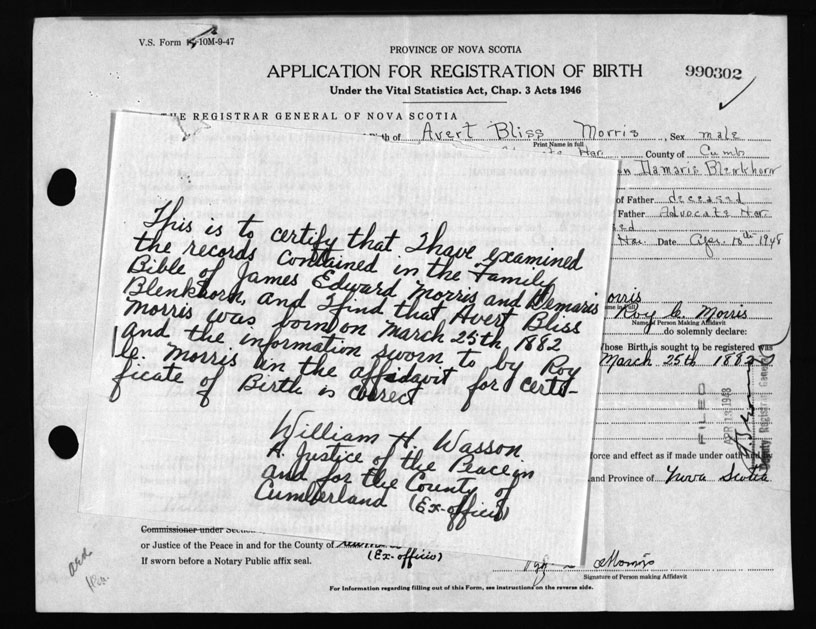 V.S. Form 10M-9-47
PROVINCE OF NOVA SCOTIA
APPLICATION FOR REGISTRATION OF BIRTH
990302
Under the Vital Statistics Act, Chap. 3 Acts 1946
THE REGISTRAR GENERAL OF NOVA SCOTIA
th of Avert Bliss Morris, Sex male
Print Name in full
Har. County of Cumb
Damaris Blenkhorn
of Father deceased
Father Advocate Har.
Har. Date Apr. 10th 1948
This is to certify that I have examined
the records contained in the Family
Bible of James Edward Morris and Demaris
Blenkhorn, and I find that Avert Bliss
Morris was born on March 25th 1882
and the information sworn to by Roy
C. Morris in the affidavit for certi-
ficate of Birth is correct
William H. Wasson
A Justice of the Peace in
and for the County of
Cumberland (Ex-officio)
orris
Roy C. Morris
Name of Person Making Affidavit
do solemnly declare:
Those Birth is sought to be registered was
March 25th 1882
FILED
APR 13 1948
Deputy Registrar General
force and effect as if made under oath
and Province of Nova Scotia
Commissioner under
or Justice of the Peace in and for the County of
(Ex-officio)
If sworn before a Notary Public affix seal.
Morris
Signature of Person making Affidavit
For Information regarding filling out of this Form, see instructions on the reverse side.